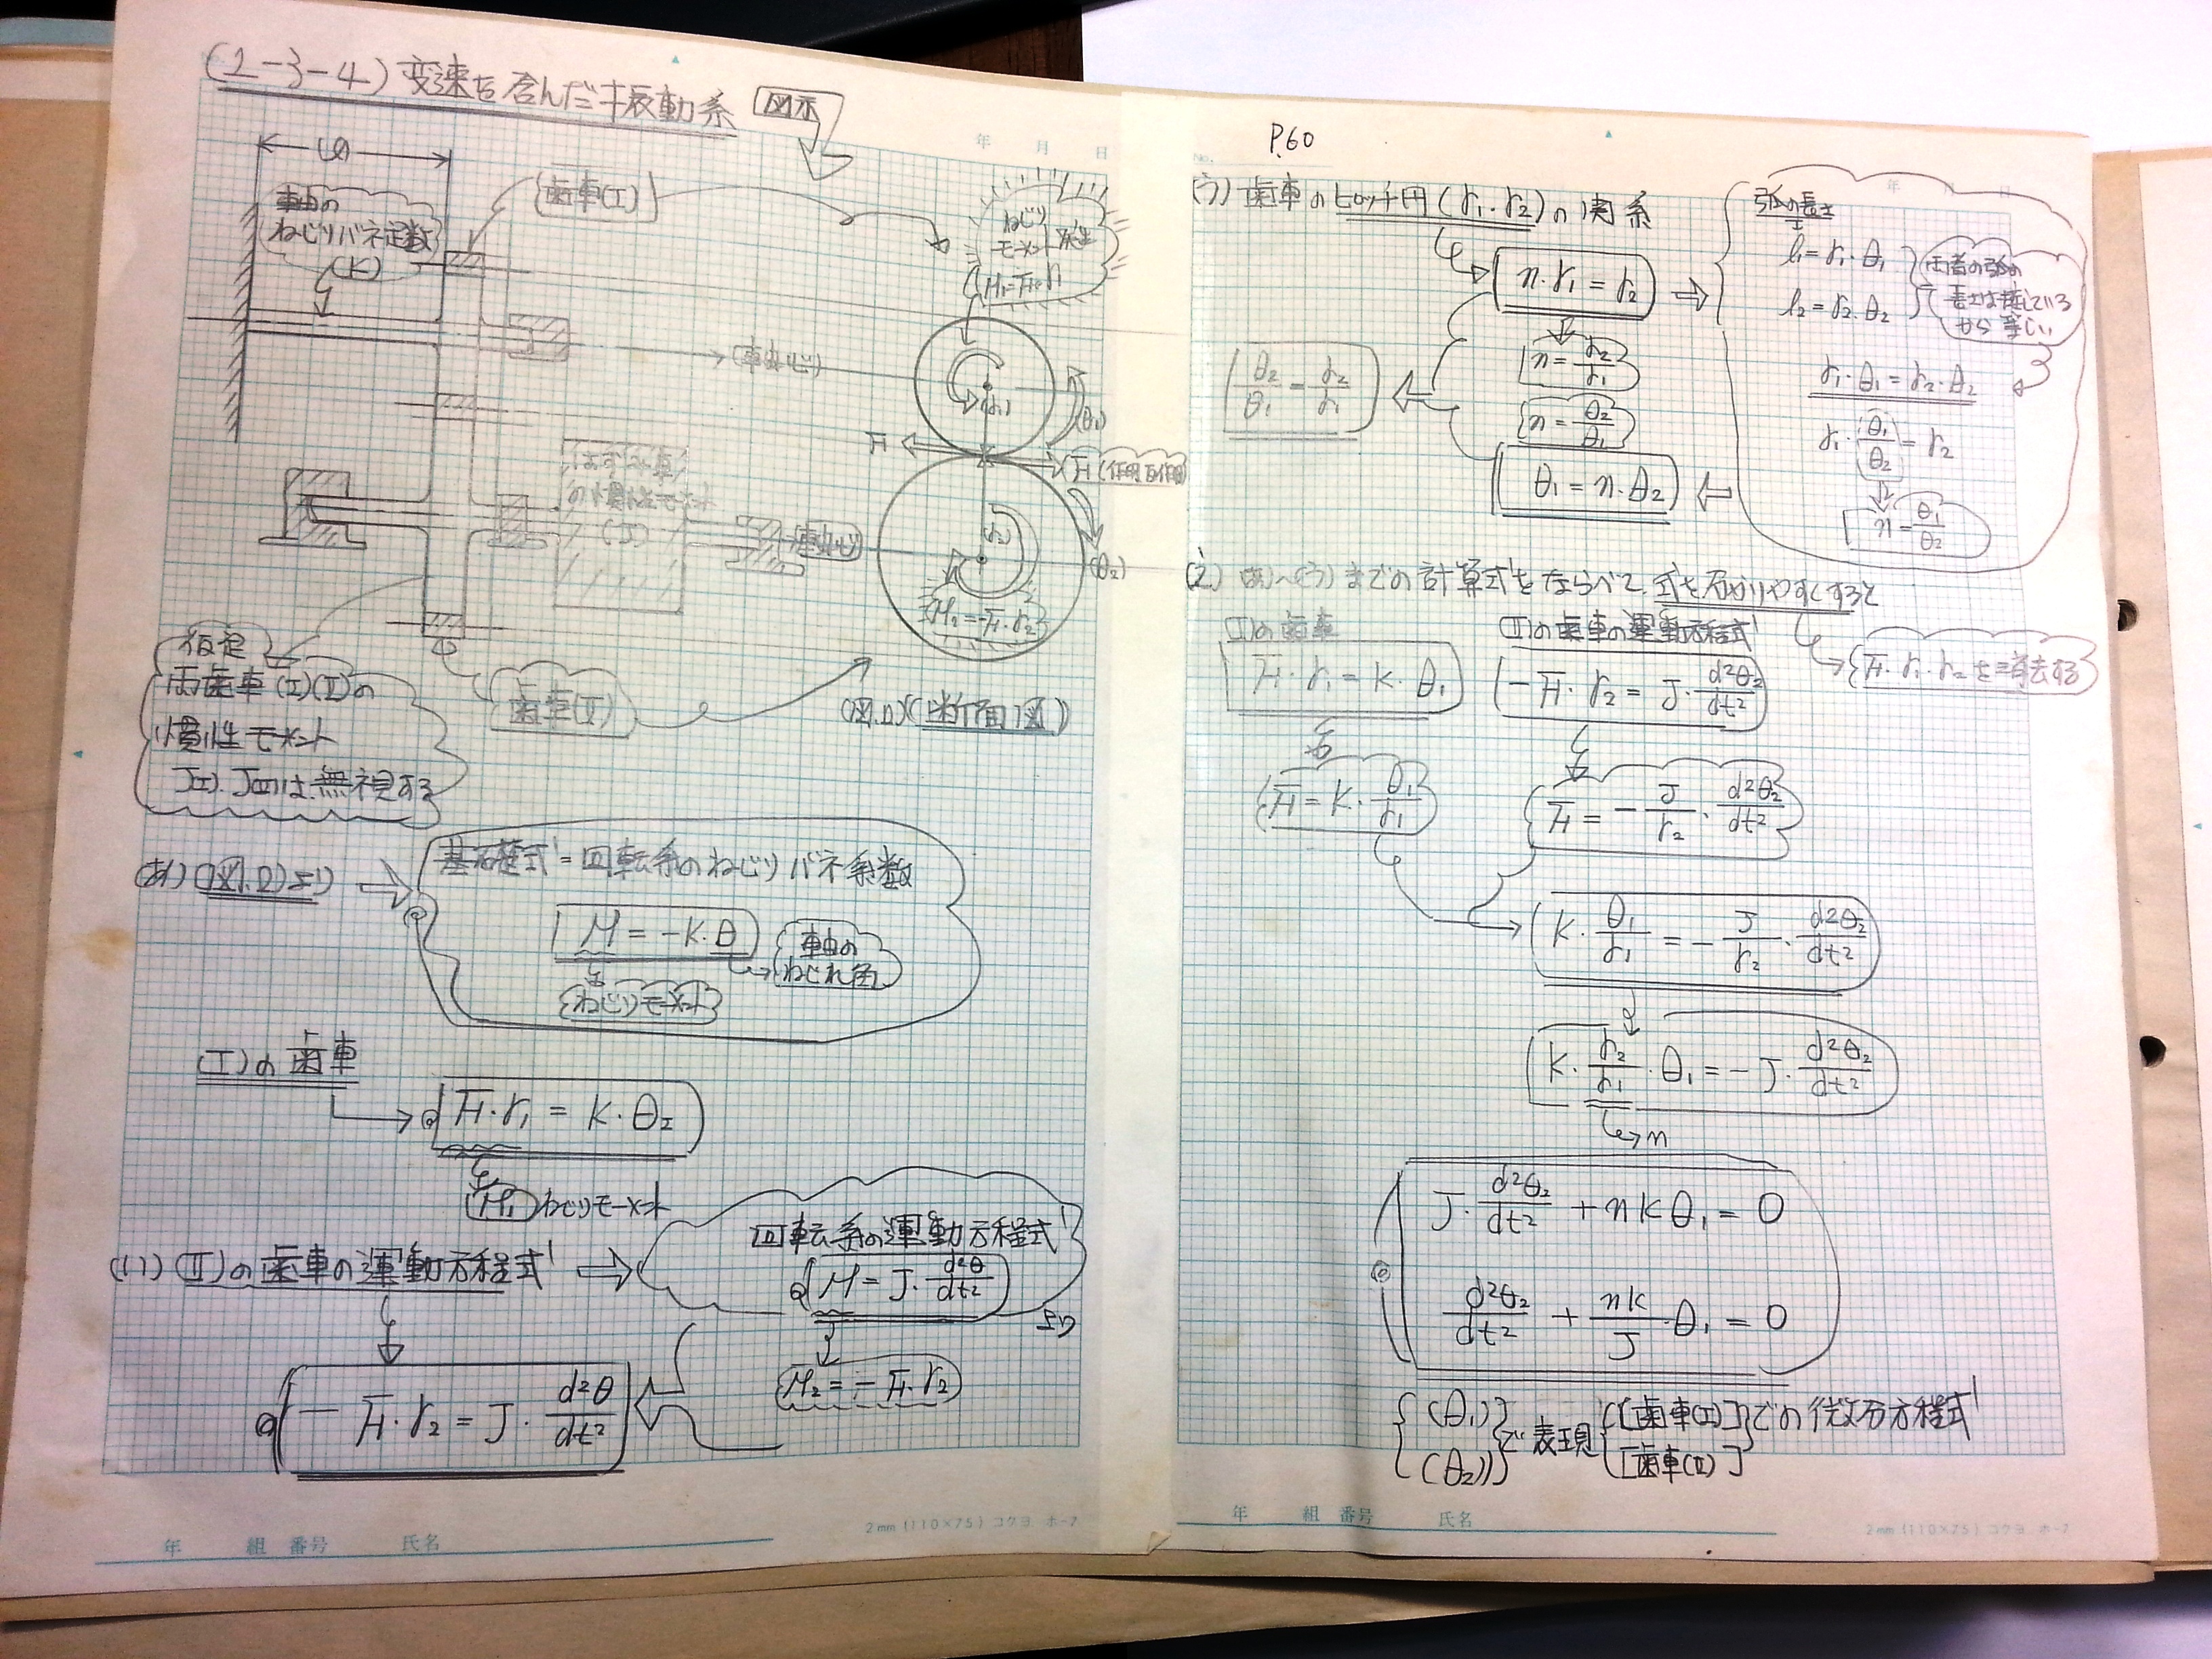 (2-3-4) 変速を含んだ振動系 図示
年 月 日
軸の
ねじりバネ定数
(K)
歯車(I)
ねじり
モーメント発生
M₁=F・r₁
(軸心)
(r₁)
(θ₁)
F
F (作用反作用)
はずみ車
の慣性モーメント
(J)
軸心
(r₂)
(θ₂)
M₂=-F・r₂
仮定
両歯車(I)(II)の
慣性モーメント
J(I).J(II)は無視する
歯車(II)
(図.D)(断面図)
(あ) (図.D)より
基礎式=回転系のねじりバネ系数
M = -K・θ
軸の
ねじれ角
ねじりモーメント
(I)の歯車
F・r₁ = K・θ₂
(M₁) ねじりモーメント
(い) (II)の歯車の運動方程式
回転系の運動方程式
M = J・d²θ/dt²
より
M₂ = -F・r₂
-F・r₂ = J・d²θ/dt²
年 組 番号 氏名
2mm (110×75) コクヨ ホ-7
No.
P.60
年 月 日
(う) 歯車のピッチ円(r₁.r₂)の関系
n・r₁ = r₂
n = r₂/r₁
n = θ₂/θ₁
θ₂/θ₁ = r₂/r₁
θ₁ = n・θ₂
弧の長さ
l₁ = r₁・θ₁
l₂ = r₂・θ₂
両者の弧の
長さは接している
から等しい
r₁・θ₁ = r₂・θ₂
r₁・(θ₁/θ₂) = r₂
n = θ₁/θ₂
(え) (あ)~(う)までの計算式をならべて、式を分かりやすくすると
(I)の歯車
(II)の歯車の運動方程式
F・r₁・r₂を消去する
F・r₁ = K・θ₁
-F・r₂ = J・d²θ₂/dt²
F = K・θ₁/r₁
F = -J/r₂・d²θ₂/dt²
K・θ₁/r₁ = -J/r₂・d²θ₂/dt²
K・r₂/r₁・θ₁ = -J・d²θ₂/dt²
n
J・d²θ₂/dt² + nKθ₁ = 0
d²θ₂/dt² + nK/J・θ₁ = 0
{(θ₁) (θ₂)}で表現 {[歯車(I)] [歯車(II)]}での微分方程式
年 組 番号 氏名
2mm (110×75) コクヨ ホ-7